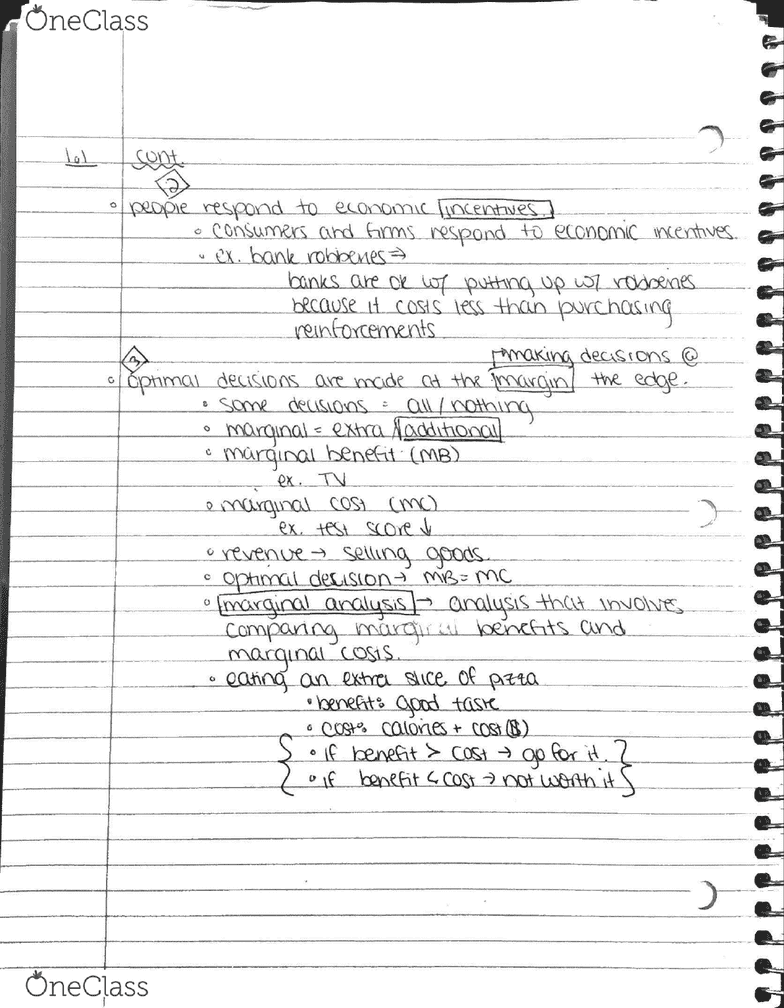 OneClass
1.1 cont.
2
◦ people respond to economic incentives
◦ consumers and firms respond to economic incentives.
◦ ex. bank robberies →
banks are ok w/ putting up w/ robberies
because it costs less than purchasing
reinforcements
3
→ making decisions @
◦ optimal decisions are made at the margin the edge.
◦ some decisions = all / nothing
◦ marginal = extra / additional
◦ marginal benefit (MB)
ex. TV
◦ marginal cost (MC)
ex. test score ↓
◦ revenue → selling goods.
◦ optimal decision → MB = MC
◦ marginal analysis → analysis that involves
comparing marginal benefits and
marginal costs.
◦ eating an extra slice of pizza
◦ benefit: good taste
◦ cost: calories + cost ($)
{ ◦ if benefit > cost → go for it. }
{ ◦ if benefit < cost → not worth it }
OneClass